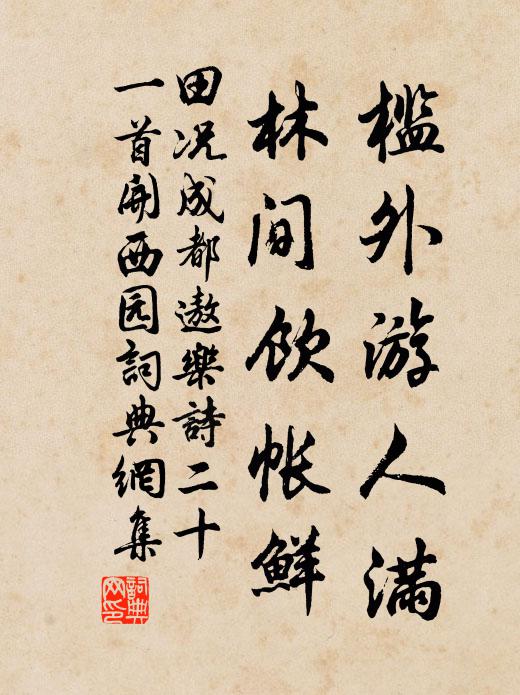 槛外游人满
林间饮帐鲜
田况成都遨樂詩二十
一首開西园詞典網集
詞典网印